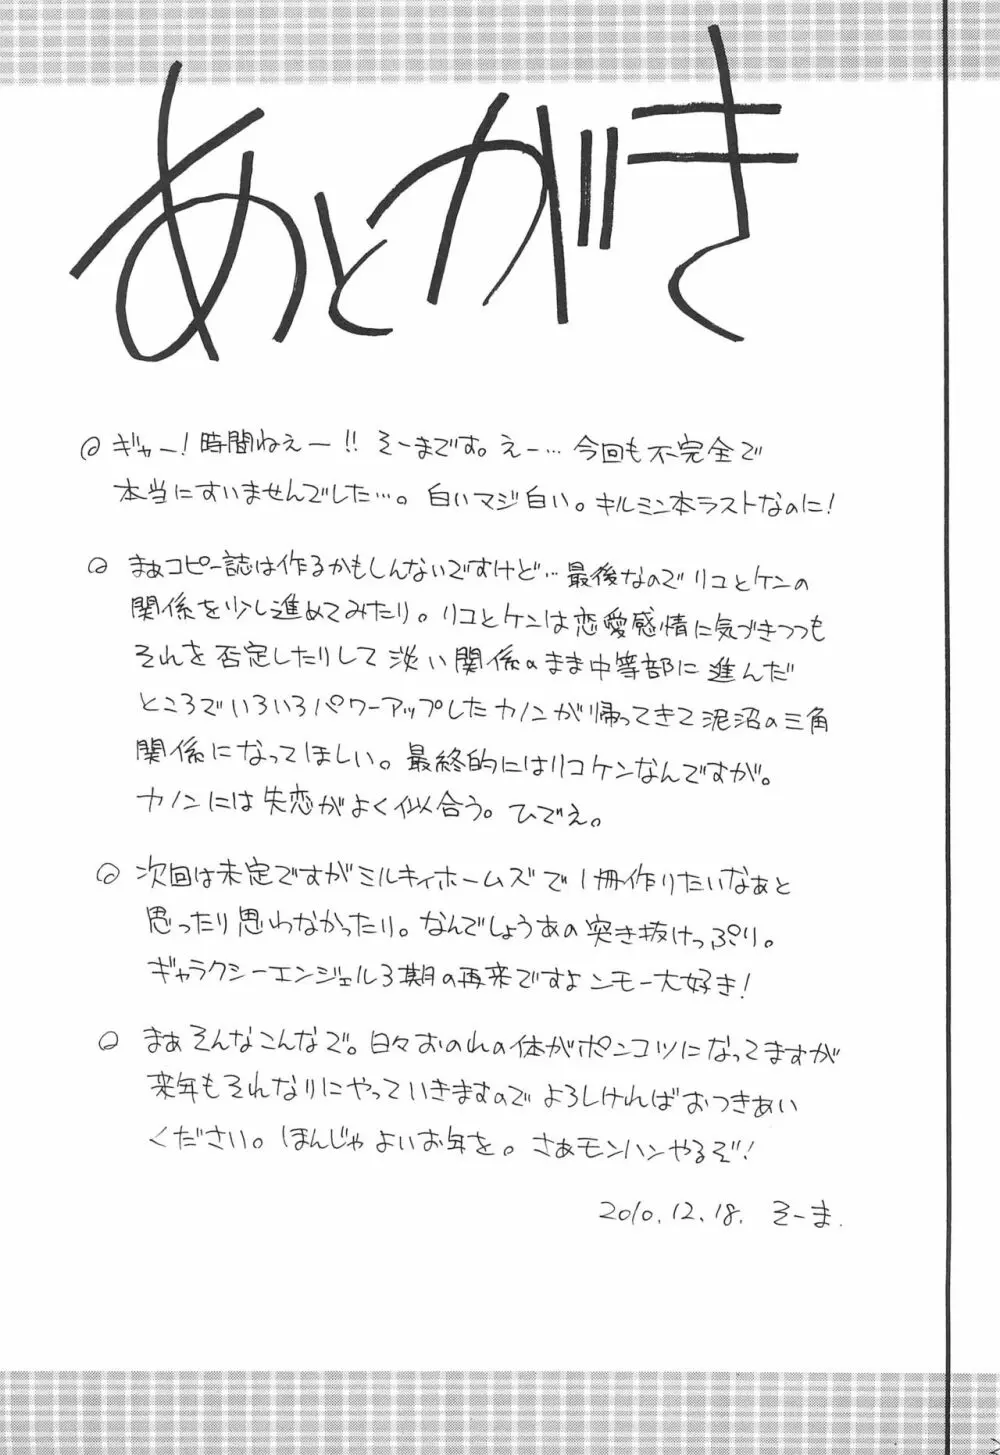 あとがき
ギャー！時間ねえー!! そーまです。えー…今回も不完全で
本当にすいませんでした…。白いマジ白い。キルミン本ラストなのに！
まぁコピー誌は作るかもしんないですけど…最後なのでリコとケンの
関係を少し進めてみたり。リコとケンは恋愛感情に気づきつつも
それを否定したりして淡い関係のまま中等部に進んだ
ところでいろいろパワーアップしたカノンが帰ってきて泥沼の三角
関係になってほしい。最終的にはリコケンなんですが。
カノンには失恋がよく似合う。ひでえ。
次回は未定ですがミルキィホームズで1冊作りたいなぁと
思ったり思わなかったり。なんでしょうあの突き抜けっぷり。
ギャラクシーエンジェル3期の再来ですよンモー大好き！
まぁそんなこんなで。日々おのれの体がポンコツになってますが
来年もそれなりにやっていきますのでよろしければおつきあい
ください。ほんじゃよいお年を。さぁモンハンやるぞ！
2010.12.18. そーま.